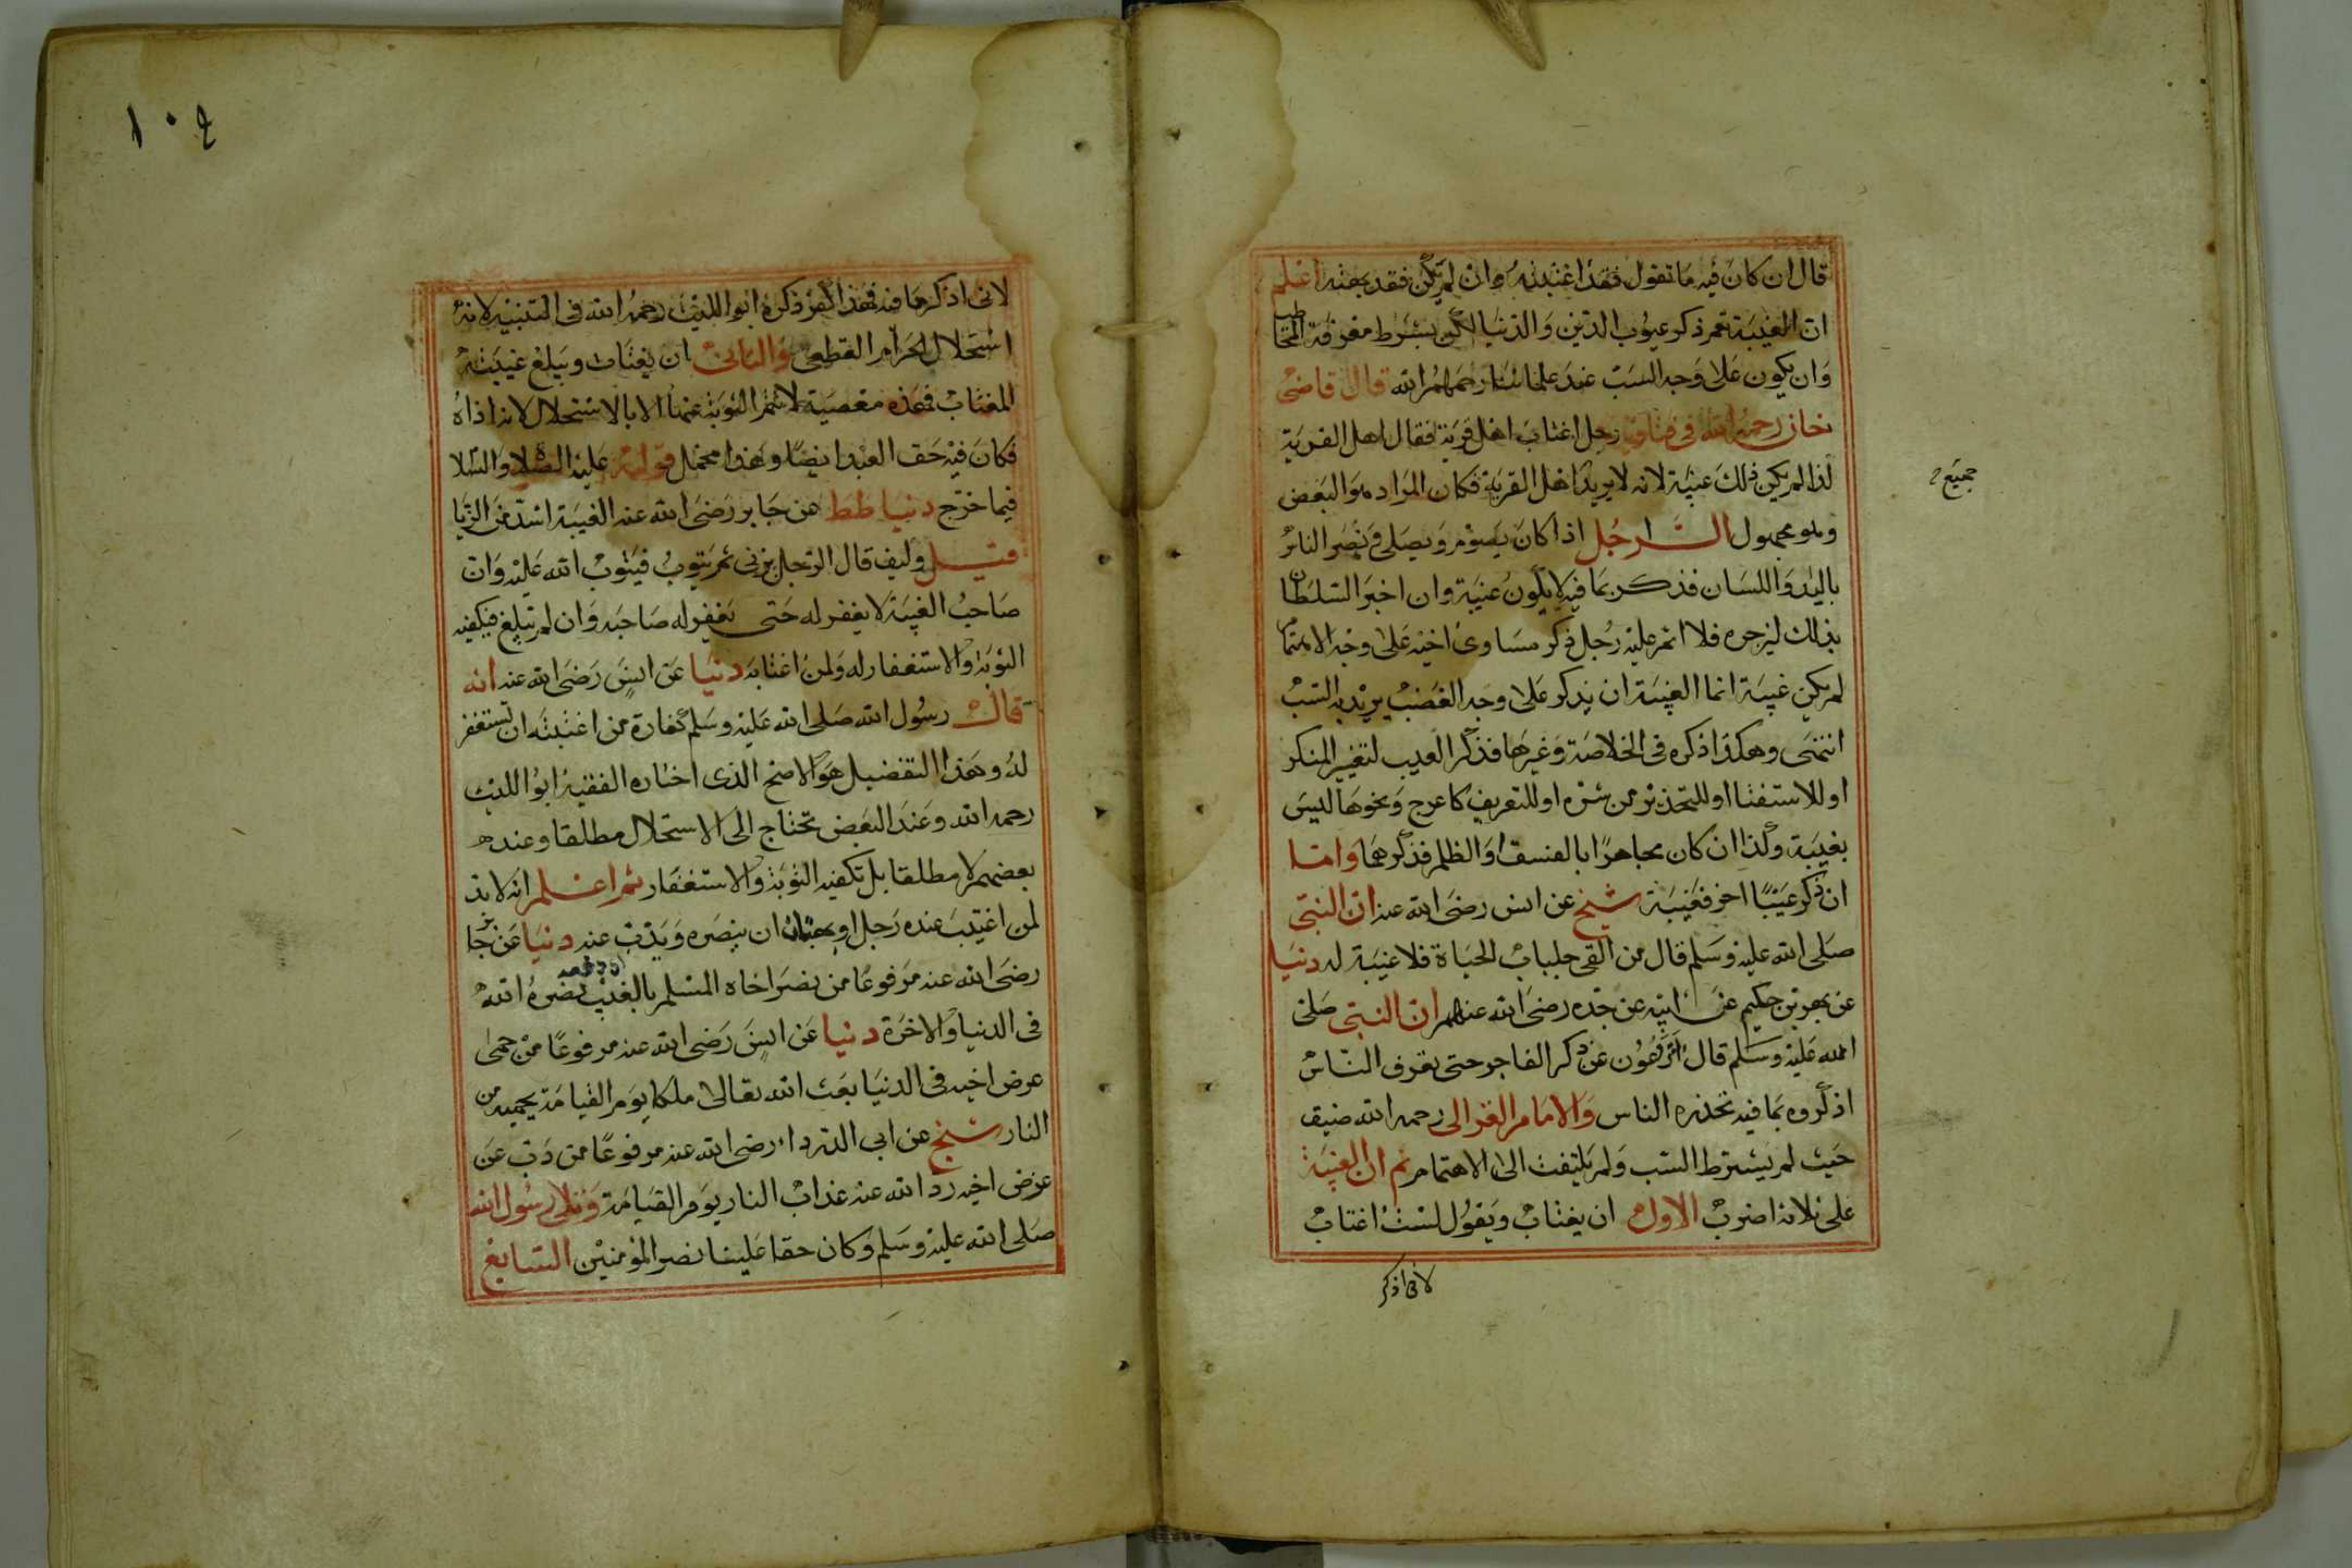 قال ان كان فيه ما تقول فقد اغتبته وان لم يكن فقد بهته اعلم
ان الغيبة تعم ذكر عيوب الدين والدنيا لكن بشرط معرفة المخاطب
وان يكون على وجه السب عند علمائنا رحمهم الله قال قاضى
خان رحمه الله فى فتاويه رجل اغتاب اهل قرية فقال اهل القرية
كذا لم يكن ذلك غيبة لانه لا يريد اهل القرية فكان المراد هو البعض
جميع
وهو مجهول الرجل اذا كان يصوم ويصلى ويضر الناس
باليد واللسان فذكر بما فيه لا يكون غيبة وان اخبر السلطان
بذلك ليزجره فلا اثم عليه رجل ذكر مساوى اخيه على وجه الاهتمام
لم يكن غيبة انما الغيبة ان يذكر على وجه الغضب يريد به السب
انتهى وهكذا ذكره فى الخلاصة وغيرها فذكر العيب لتغيير المنكر
او للاستفتا او للتحذير من شره او للتعريف كاعرج ونحوها ليس
بغيبة وكذا ان كان مجاهرا بالفسق او الظلم فذكرهما واما
ان ذكر عيبا اخر فغيبة شيخ عن انس رضى الله عنه ان النبى
صلى الله عليه وسلم قال من القى جلباب الحياة فلا غيبة له دنيا
عن بهز بن حكيم عن ابيه عن جده رضى الله عنهم ان النبى صلى
الله عليه وسلم قال اترعون عن ذكر الفاجر حتى يعرف الناس
اذكروه بما فيه تحذره الناس والامام الغزالى رحمه الله ضيق
حيث لم يشترط السب ولم يلتفت الى الاهتمام ثم ان الغيبة
على ثلاثة اضرب الاول ان يغتاب ويقول لست اغتاب
لانى اذكر
١٠٤
لانى اذكر ما فيه فهذا كفر ذكره ابو الليث رحمه الله فى التنبيه لانه
استحلال الحرام القطعى والثانى ان يغتاب ويبلغ غيبته
المغتاب فهذه معصية لا تتم التوبة عنها الا بالاستحلال لانه اذاه
فكان فيه حق العبد ايضا وهذا محمل قوله عليه الصلاة والسلا
فيما خرج دنيا طط عن جابر رضى الله عنه الغيبة اشد من الزنا
قيل وكيف قال الرجل يزنى ثم يتوب فيتوب الله عليه وان
صاحب الغيبة لا يغفر له حتى يغفر له صاحبه وان لم تبلغ فيكفيه
التوبة والاستغفار له ولمن اغتابه دنيا عن انس رضى الله عنه انه
قال رسول الله صلى الله عليه وسلم كفارة من اغتبته ان تستغفر
له وهذا التفضيل هو الاصح الذى اختاره الفقيه ابو الليث
رحمه الله وعند البعض تحتاج الى الاستحلال مطلقا وعند
بعضهم لا مطلقا بل تكفيه التوبة والاستغفار ثم اعلم انه لا بد
لمن اغتيب عنده رجل او بهتان ان ينصره ويذب عنه دنيا عن جابر
رضى الله عنه مرفوعا من نصر اخاه المسلم بالغيب نصره الله
فى الدنيا والاخرة دنيا عن انس رضى الله عنه مرفوعا من حمى
عرض اخيه فى الدنيا بعث الله تعالى ملكا يوم القيامة يحميه من
النار شيخ عن ابى الدرداء رضى الله عنه مرفوعا من ذب عن
عرض اخيه رد الله عنه عذاب النار يوم القيامة وتلى رسول الله
صلى الله عليه وسلم وكان حقا علينا نصر المؤمنين السابع